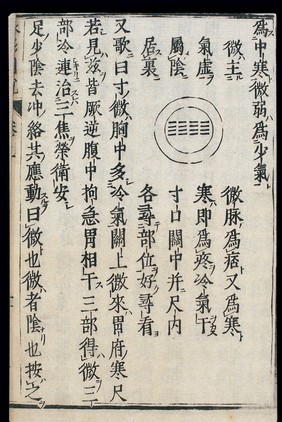 為中寒微弱為少氣
微主
氣虛
屬陰
居裏
微脉為痞又為寒
寒即為疼冷氣干
寸口關中并尺内
各尋部位好尋看
又歌曰寸微胸中多冷氣關上微來胃府寒尺
若見茲皆厥逆腹中拘急胃相干三部得微三
部冷連治三焦榮衛安
足少陰去冲絡其應動曰微也微者陰也按之